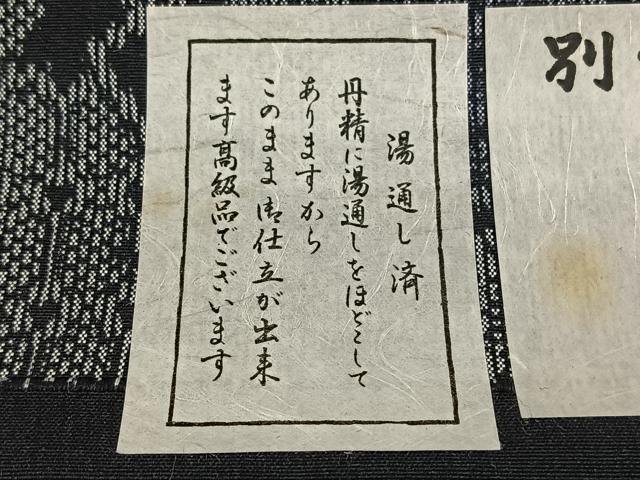 湯通し済
丹精に湯通しをほどこして
ありますから
このまま御仕立が出来
ます高級品でございます
別